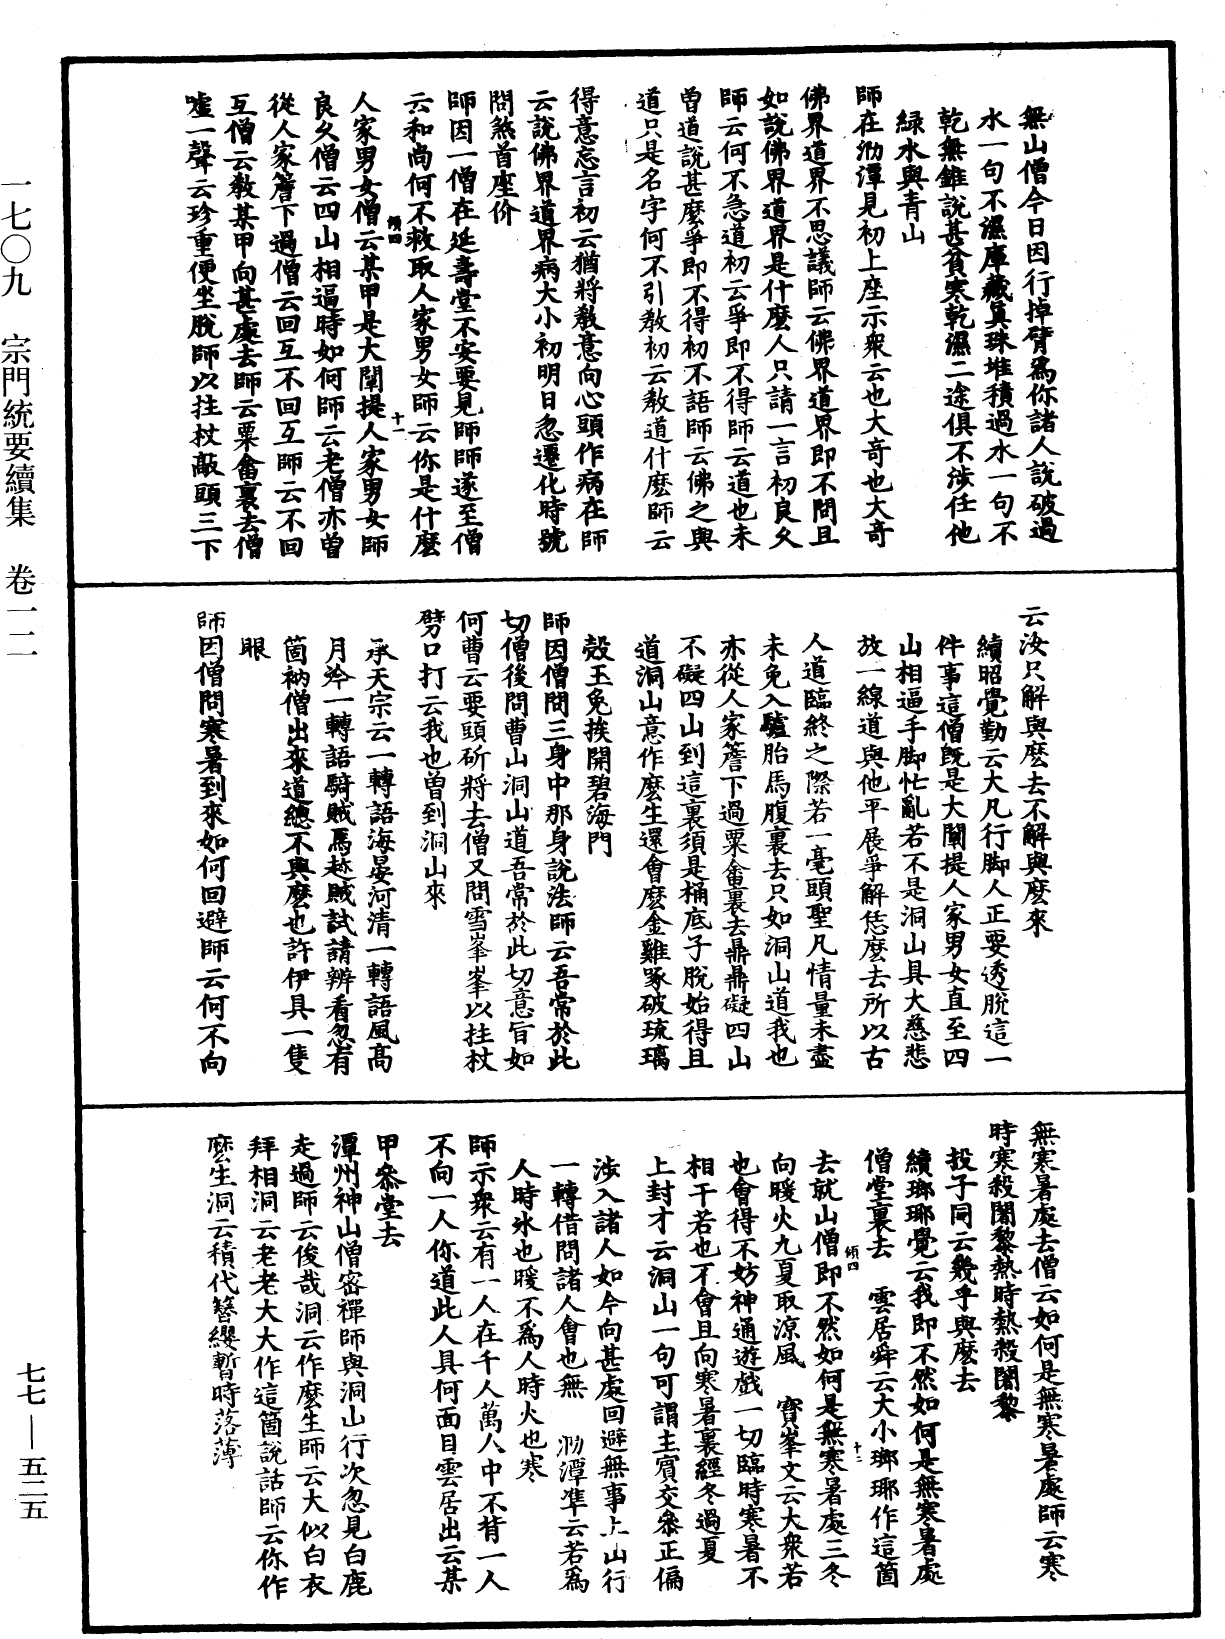 無山僧今日因行掉臂爲你諸人說破過
水一句不濕庫藏眞珠堆積過水一句不
乾無錐說甚貧寒乾濕二途俱不涉任他
綠水與青山
師在泐潭見初上座示衆云也大奇也大奇
佛界道界不思議師云佛界道界即不問且
如說佛界道界是什麽人只請一言初良久
師云何不急道初云爭即不得師云道也未
曾道說甚麽爭即不得初不語師云佛之與
道只是名字何不引教初云教道什麽師云
得意忘言初云猶將教意向心頭作病在師
云說佛界道界病大小初明日忽遷化時號
問煞首座价
師因一僧在延壽堂不安要見師師遂至僧
云和尚何不救取人家男女師云你是什麽
人家男女僧云某甲是大闡提人家男女師
良久僧云四山相逼時如何師云老僧亦曾
從人家簷下過僧云回互不回互師云不回
互僧云教某甲向甚處去師云粟畬裏去僧
嘘一聲云珍重便坐脫師以拄杖敲頭三下
云汝只解與麽去不解與麽來
續昭覺勤云大凡行脚人正要透脫這一
件事這僧既是大闡提人家男女直至四
山相逼手脚忙亂若不是洞山具大慈悲
放一線道與他平展爭解恁麽去所以古
人道臨終之際若一毫頭聖凡情量未盡
未免入驢胎馬腹裏去只如洞山道我也
亦從人家簷下過粟畬裏去鼎鼎礙四山
不礙四山到這裏須是桶底子脫始得且
道洞山意作麽生還會麽金雞啄破琉璃
殼玉兔挨開碧海門
師因僧問三身中那身說法師云吾常於此
切僧後問曹山洞山道吾常於此切意旨如
何曹云要頭斫將去僧又問雪峯峯以拄杖
劈口打云我也曾到洞山來
承天宗云一轉語海晏河清一轉語風高
月冷一轉語騎賊馬趂賊試請辨看忽有
箇衲僧出來道總不與麽也許伊具一隻
眼
師因僧問寒暑到來如何回避師云何不向
無寒暑處去僧云如何是無寒暑處師云寒
時寒殺闍黎熱時熱殺闍黎
投子同云幾乎與麽去
續瑯琊覺云我即不然如何是無寒暑處
僧堂裏去 雲居舜云大小瑯琊作這箇
去就山僧即不然如何是無寒暑處三冬
向暖火九夏取涼風 寶峯文云大衆若
也會得不妨神通遊戲一切臨時寒暑不
相干若也不會且向寒暑裏經冬過夏
上封才云洞山一句可謂主賓交參正偏
涉入諸人如今向甚處回避無事上山行
一轉借問諸人會也無 泐潭準云若爲
人時氷也暖不爲人時火也寒
師示衆云有一人在千人萬人中不背一人
不向一人你道此人具何面目雲居出云某
甲參堂去
潭州神山僧密禪師與洞山行次忽見白鹿
走過師云俊哉洞云作麽生師云大似白衣
拜相洞云老老大大作這箇說話師云你作
麽生洞云積代簪纓暫時落薄
一七〇九 宗門統要續集 卷一二
七七—五二五